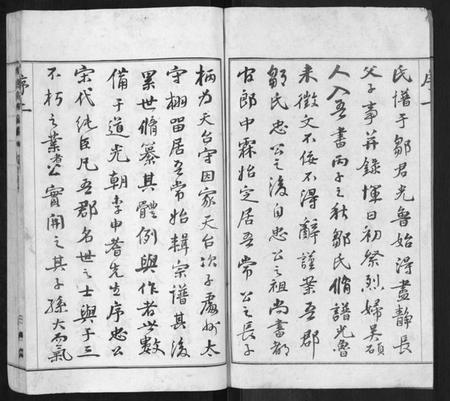 序一
氏譜于鄒君光魯始得盡靜長
父子事并錄惲日初祭烈婦吳碩
人入吾書丙子之秋鄒氏脩譜光魯
来徵文不佞不得辭謹案吾郡
鄒氏忠公之後自忠公之祖尚書都
官郎中霖始定居吾常公之長子
柄为天台守因家天台次子處州太
守栩留居吾常始輯宗譜其後
累世脩纂其體例與作者世數
備于道光朝李申耆先生序忠公
宋代純臣凡吾郡名世之士與于三
不朽之業者公實開之其子孫大而氣
序一